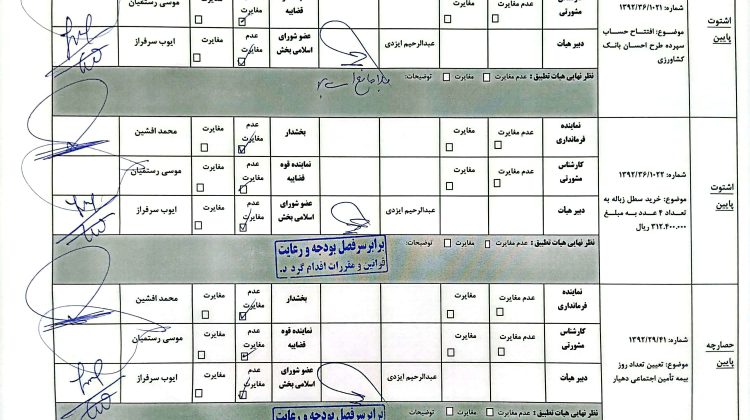 اشنوت
پایین
شماره: ۱۳۹۲/۳۶/۱۰۲۱
موضوع: افتتاح حساب
سپرده طرح احسان بانک
کشاورزی
مشورتی
عدم مغایرت
مغایرت
قضاییه
مغایرت
مغایرت
موسی رستمیان
دبیر هیات
عبدالرحیم ایزدی
عضو شورای
اسلامی بخش
عدم
مغایرت
مغایرت
ایوب سرفراز
نظر نهایی هیات تطبیق: عدم مغایرت مغایرت توضیحات:
اشنوت
پایین
شماره: ۱۳۹۲/۳۶/۱۰۲۲
موضوع: خرید سطل زباله به
تعداد ۴ عدد به مبلغ
۳۱۲.۴۰۰.۰۰۰ ریال
نماینده
فرمانداری
عدم مغایرت
مغایرت
بخشدار
عدم
مغایرت
مغایرت
محمد افشین
کارشناس
مشورتی
عدم مغایرت
مغایرت
نماینده قوه
قضاییه
عدم
مغایرت
مغایرت
موسی رستمیان
دبیر هیات
عبدالرحیم ایزدی
عضو شورای
اسلامی بخش
عدم
مغایرت
مغایرت
ایوب سرفراز
نظر نهایی هیات تطبیق: عدم مغایرت مغایرت توضیحات:
برابر سرفصل بودجه و رعایت
قوانین و مقررات اقدام گردد.
حصارچه
پایین
شماره: ۱۳۹۲/۲۹/۴۱
موضوع: تعیین تعداد روز
بیمه تأمین اجتماعی دهیار
نماینده
فرمانداری
عدم مغایرت
مغایرت
بخشدار
عدم
مغایرت
مغایرت
محمد افشین
کارشناس
مشورتی
عدم مغایرت
مغایرت
نماینده قوه
قضاییه
عدم
مغایرت
مغایرت
موسی رستمیان
دبیر هیات
عبدالرحیم ایزدی
عضو شورای
اسلامی بخش
عدم
مغایرت
مغایرت
ایوب سرفراز
نظر نهایی هیات تطبیق: عدم مغایرت مغایرت توضیحات:
برابر سرفصل بودجه و رعایت